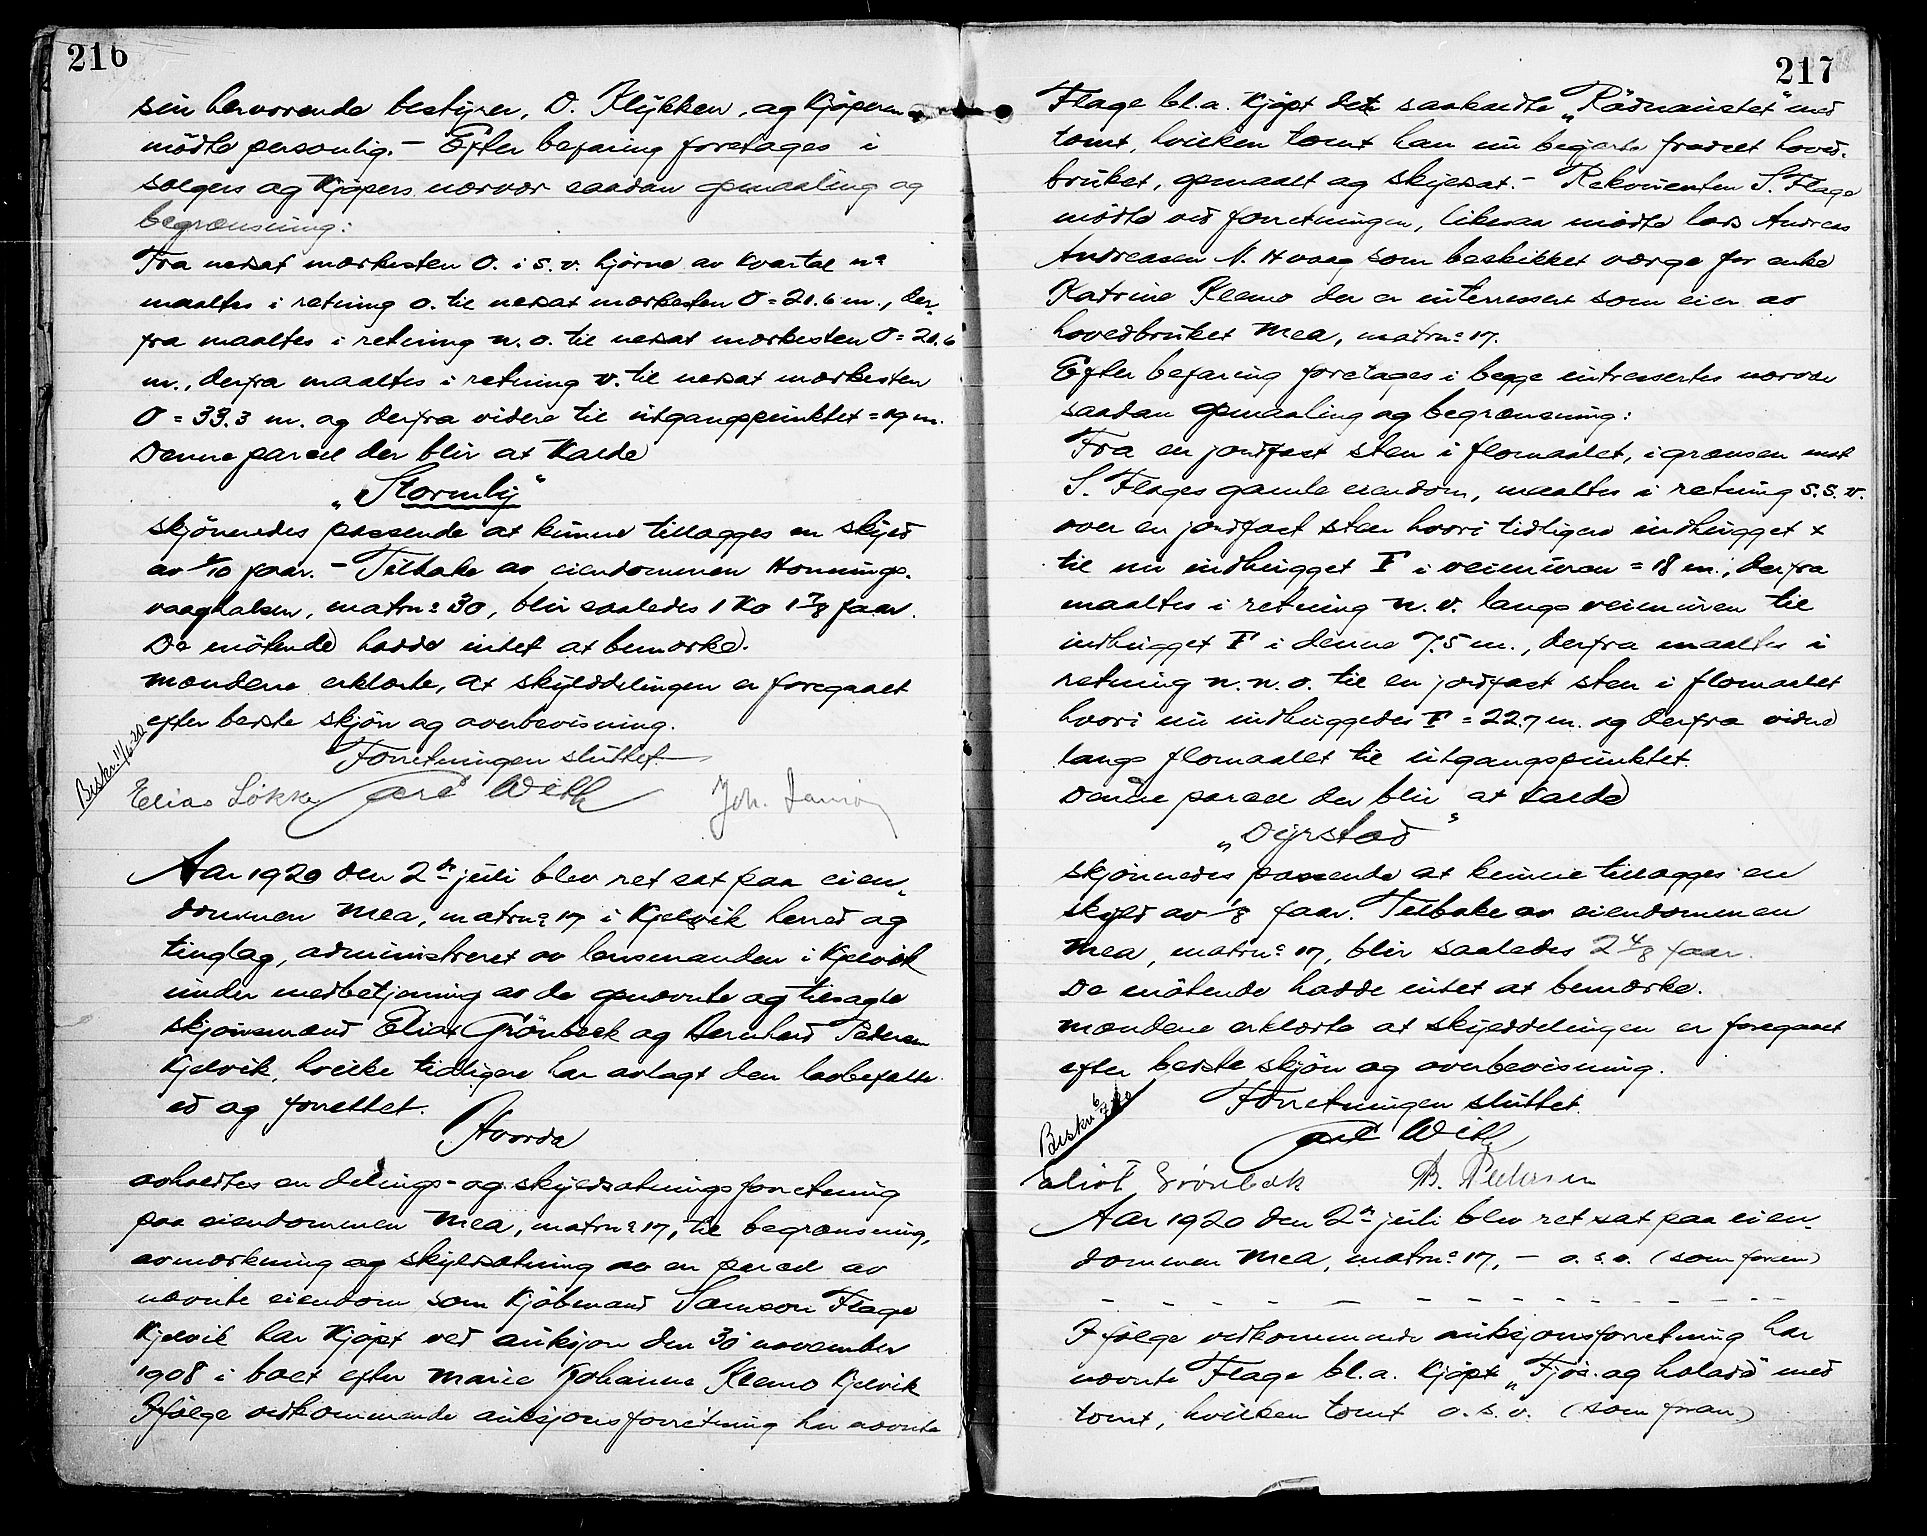 216
sin herværende bestyrer, O. Klykken, og Kjöperen
mödte personlig. – Efter befaring foretages i
sælgers og Kjöpers nærvær saadan opmaaling og
begrænsning:
Fra nedsat mærkesten O. i s.v. hjörne av Kvartal no
maaltes i retning o. til nedsat mærkesten O = 20.6 m., der-
fra maaltes i retning n.o. til nedsat mærkesten O = 20.6
m., derfra maaltes i retning v. til nedsat mærkesten
O = 33.3 m. og derfra videre til utgangspunktet = 19 m.
Denne parcel der blir at Kalde
„Stormly“
skjönnedes passende at kunne tillægges en skyld
av 1/10 faar. – Tilbake av eiendommen Honnings-
vaaghalsen, matrno 30, blir saaledes 1 Ko 1 7/8 faar.
De mötende hadde intet at bemærke.
Mændene erklærte, at skylddelingen er foregaaet
efter bedste skjön og overbevisning.
Forretningen sluttet.
Beskr. 11/6 20.
Elias Lökke Carl With Joh.
Aar 1920 den 2n juli blev ret sat paa eien-
dommen Mea, matrno 17 i Kjelvik herred og
tinglag, administreret av lensmanden i Kjelvik
under medbetjening av de opnævnte og tilsagte
skjönsmænd Eliot Grönbeck og Bernhard Pedersen
Kjelvik, hvilke tidligere har avlagt den lovbefalte
ed og forrettet.
Hvorda
avholdtes en delings- og skyldsætningsforretning
paa eiendommen Mea, matrno 17, til begrænsning,
avmærkning og skyldsætning av en parcel av
nævnte eiendom som Kjöbmand Samson Flage
Kjelvik har Kjöpt ved auksjon den 30 november
1908 i boet efter Marie Johanne Klemo Kjelvik
Ifölge vedkommende auksjonsforretning har nævnte
217
Flage bl.a. Kjöpt det saakaldte „Rödnaustet“ med
tomt, hvilken tomt han nu begjærte fradelt hoved-
bruket, opmaalt og skyldsat. – Rekvirenten S. Flage
mödte ved forretningen, likesaa mödte Lars Andreas
Andreasen N. Hvaag som beskikket værge for enke
Katrine Klemo der er interressert som eier av
hovedbruket Mea, matrno 17.
Efter befaring foretages i begge intressertes nærvær
saadan opmaaling og begrænsning:
Fra en jordfast sten i flomaalet, i grænsen mot
S. Flages gamle eiendom, maaltes i retning s.s.v.
over en jordfast sten hvori tidligere indhugget x
til nu indhugget F i veimuren = 18 m., derfra
maaltes i retning n.v. langs veimuren til
indhugget F i denne 7.5 m., derfra maaltes i
retning n.n.o. til en jordfast sten i flomaalet
hvori nu indhuggedes F = 22.7 m. og derfra videre
langs flomaalet til utgangspunktet.
Denne parcel der blir at kalde
„Dyrstad“
skjönnedes passende at kunne tillægges en
skyld av 1/8 faar. Tilbake av eiendommen
Mea, matrno 17, blir saaledes 2 4/8 faar.
De mötende hadde intet at bemærke.
Mændene erklærte at skylddelingen er foregaaet
efter bedste skjön og overbevisning.
Forretningen sluttet.
Beskr. 6/7 20
Carl With
Eliot Grönbek B. Pedersen
Aar 1920 den 2n juli blev ret sat paa eien-
dommen Mea, matrno 17, – o.s.v. (som foran)
Ifölge vedkommende auksjonsforretning har
nævnte Flage bl.a. Kjöpt „Fjös- og holadå“ med
tomt, hvilken tomt o.s.v. (som foran)